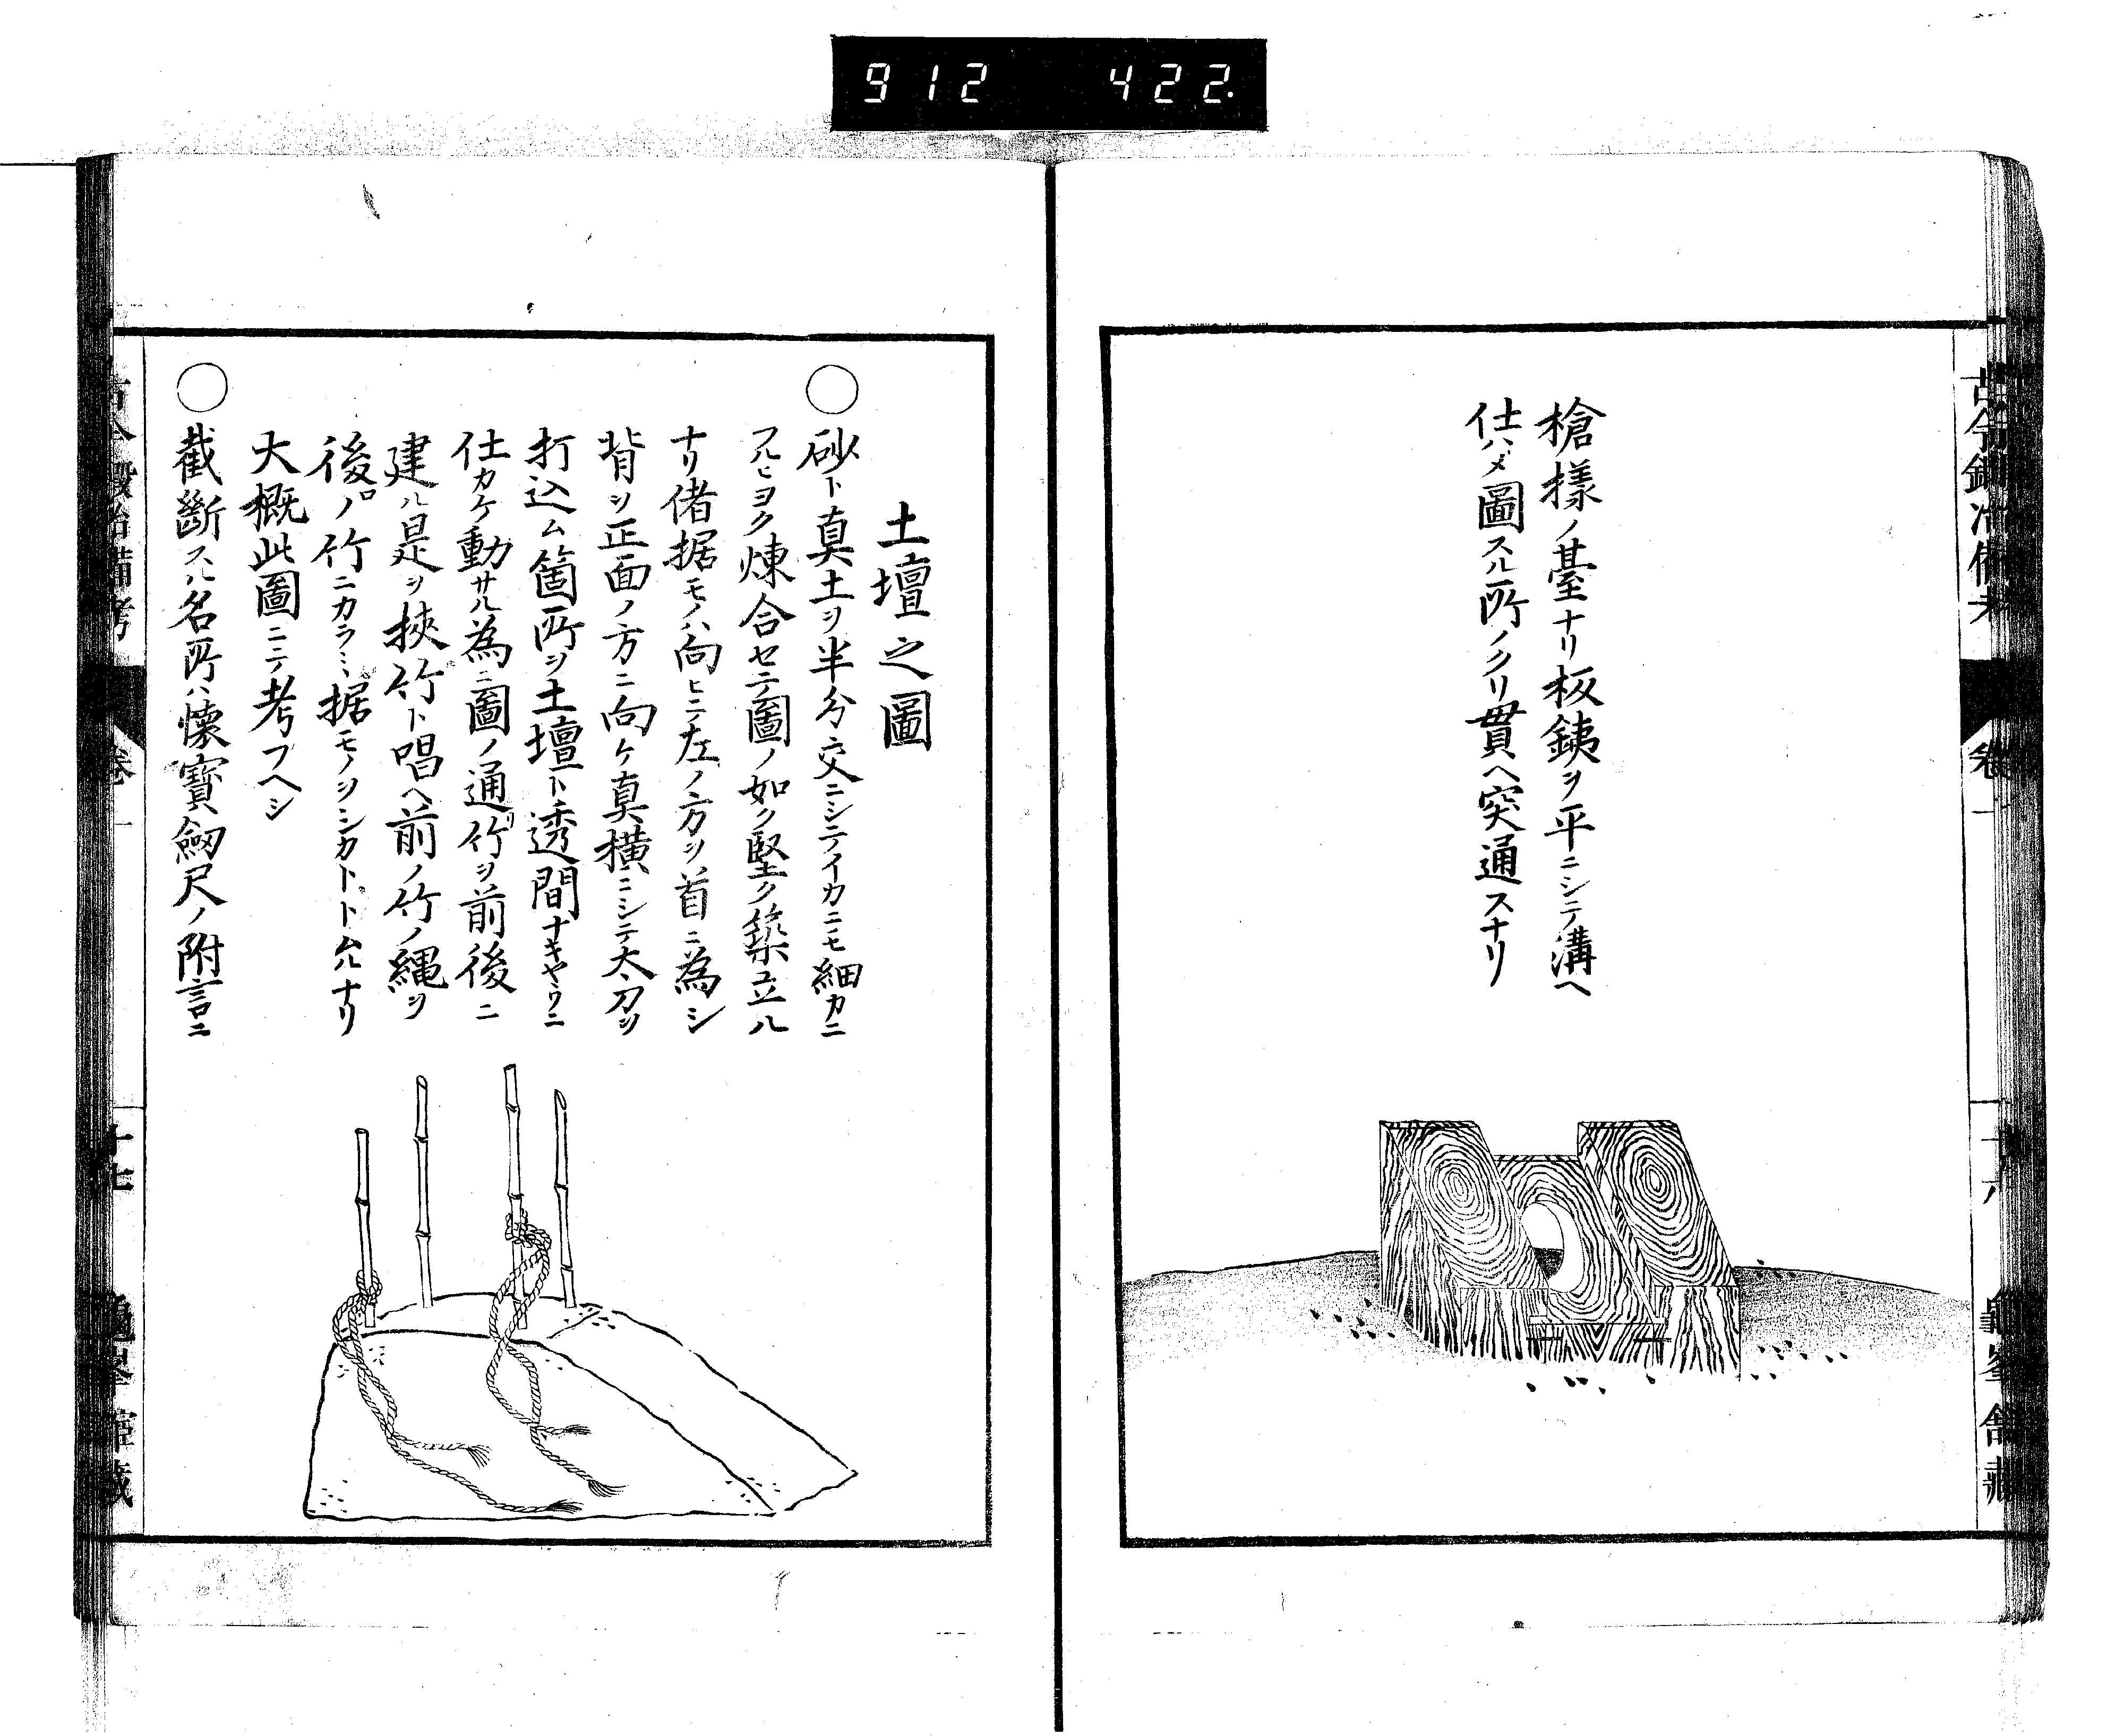 912 422.
古今鍛冶備考
卷一
槍様ノ臺ナリ板銕ヲ平ニシテ溝ヘ
仕ハメ圖スル所ノクリ貫ヘ突通スナリ
土壇之圖
○砂ト真土ヲ半分交ニシテイカニモ細カニ
フルヒヨク煉合セテ圖ノ如ク堅ク築立ル
ナリ偖据モノハ向ヒニ左ノ方ヲ首ニ為シ
背ヲ正面ノ方ニ向ケ真横ニシテ太刀ヲ
打込ム箇所ヲ土壇ト透間ナキヤウニ
仕カケ動サル為ニ圖ノ通リ竹ヲ前後ニ
建ル是ヲ挾竹ト唱ヘ前ノ竹ノ縄ヲ
後ロノ竹ニカラミ据モノヲシカトトムルナリ
大概此圖ニテ考フヘシ
○截斷スル名所ハ懐寶劔尺ノ附言ニ
古今鍛冶備考
卷一
十七